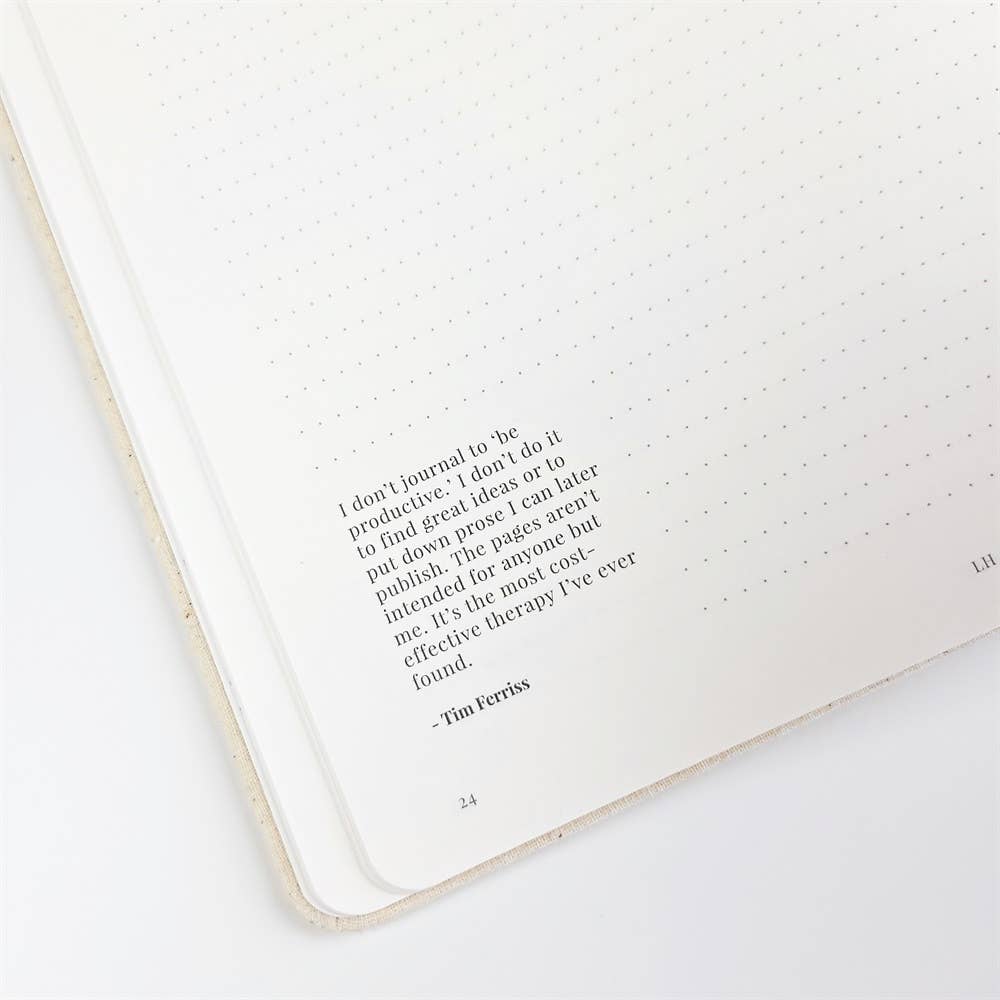 I don't journal to ‘be
productive.’ I don't do it
to find great ideas or to
put down prose I can later
publish. The pages aren't
intended for anyone but
me. It's the most cost-
effective therapy I've ever
found.
- Tim Ferriss
24
LH